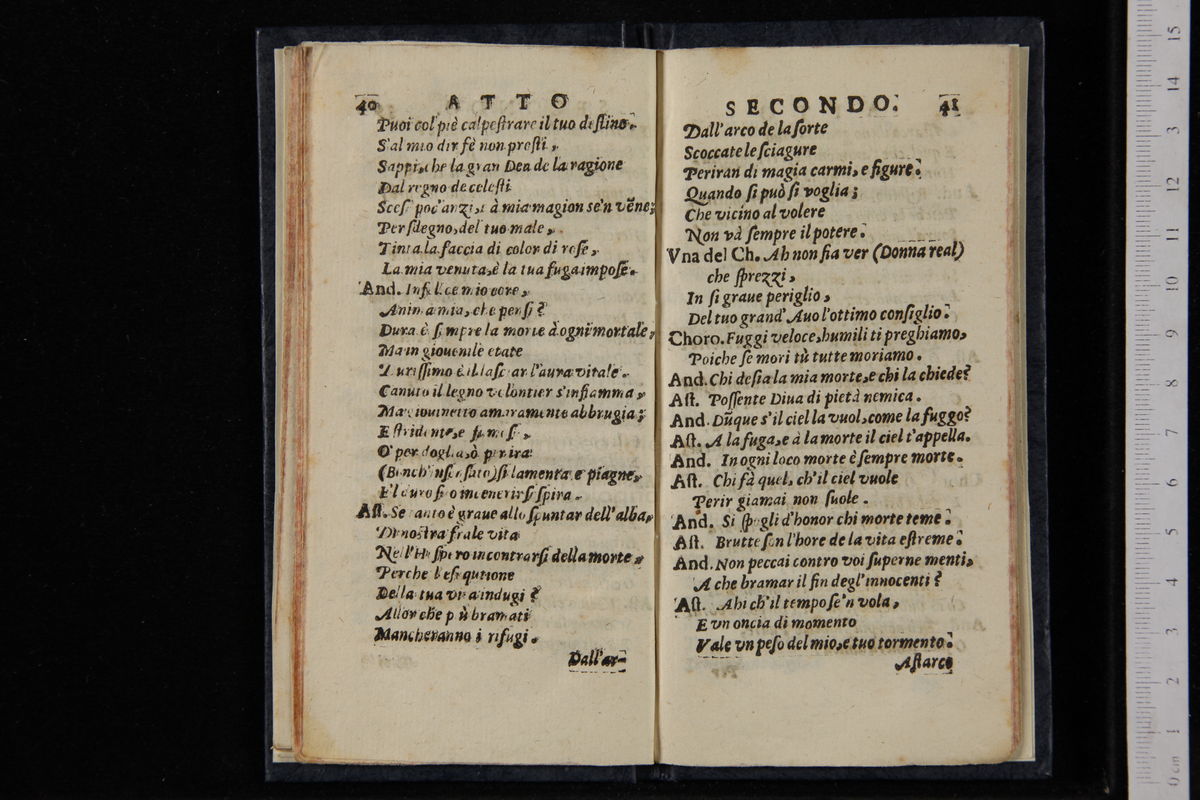 40 ATTO
Puoi col piè calpestrare il tuo destino.
S'al mio dir fè non presti,
Sappi, che la gran Dea de la ragione
Dal regno de celesti
Scese poc'anzi, e à mia magion se'n vẽne;
Per sdegno, del tuo male,
Tinta la faccia di color di rose,
La mia venuta, è la tua fuga impose.
And. Infelice mio core,
Anima mia, che pensi?
Dura è sempre la morte à ogni mortale,
Ma in giouenile etate
Durissimo è il lasciar l'aura vitale.
Canuto il legno volontier s'infiamma,
Ma giouinetto amaramente abbrugia;
E stridente, e
O per doglia, ò per ira
si lamenta e piagne,
E'l duro incenerirsi spira.
Ast. Se tanto è graue allo spuntar dell'alba,
Di nostra frale vita
Nell'Hespero incontrarsi della morte,
Perche l'essequtione
Della tua vita indugi?
Allor che più bramati
Mancheranno i rifugi.
Dall'ar-
SECONDO. 41
Dall'arco de la sorte
Scoccate le sciagure
Periran di magia carmi, e figure.
Quando si può si voglia;
Che vicino al volere
Non và sempre il potere.
Vna del Ch. Ah non fia ver (Donna real)
che sprezzi,
In si graue periglio,
Del tuo grand' Auo l'ottimo consiglio.
Choro. Fuggi veloce, humili ti preghiamo,
Poiche se mori tù tutte moriamo.
And. Chi desia la mia morte, e chi la chiede?
Ast. Possente Diua di pietà nemica.
And. Dũque s'il ciel la vuol, come la fuggo?
Ast. A la fuga, e à la morte il ciel t'appella.
And. In ogni loco morte è sempre morte.
Ast. Chi fà quel, ch'il ciel vuole
Perir giamai non suole.
And. Si spogli d'honor chi morte teme.
Ast. Brutte son l'hore de la vita estreme.
And. Non peccai contro voi superne menti,
A che bramar il fin degl'innocenti?
Ast. Ahi ch'il tempo se'n vola,
E vn oncia di momento
Vale vn peso del mio, e tuo tormento.
Astarco
0 cm 1 2 3 4 5 6 7 8 9 10 11 12 3 14 15